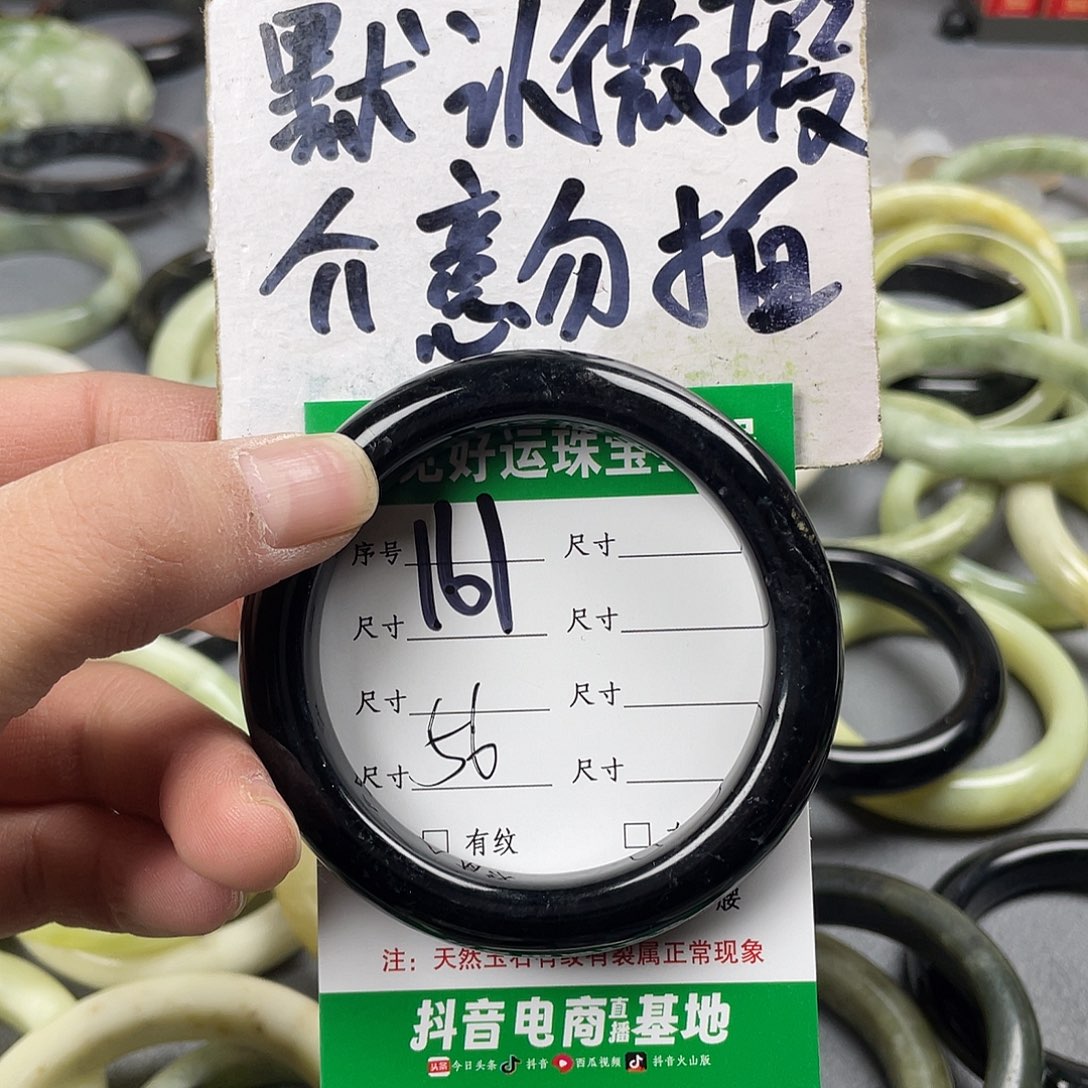 默认微瑕
介意勿拍
好运珠宝
序号 161 尺寸
尺寸 尺寸
尺寸 尺寸
尺寸 56 尺寸
□ 有纹 □
注：天然玉石有纹有裂属正常现象
抖音电商直播基地
头条 今日头条 抖音 西瓜视频 抖音火山版